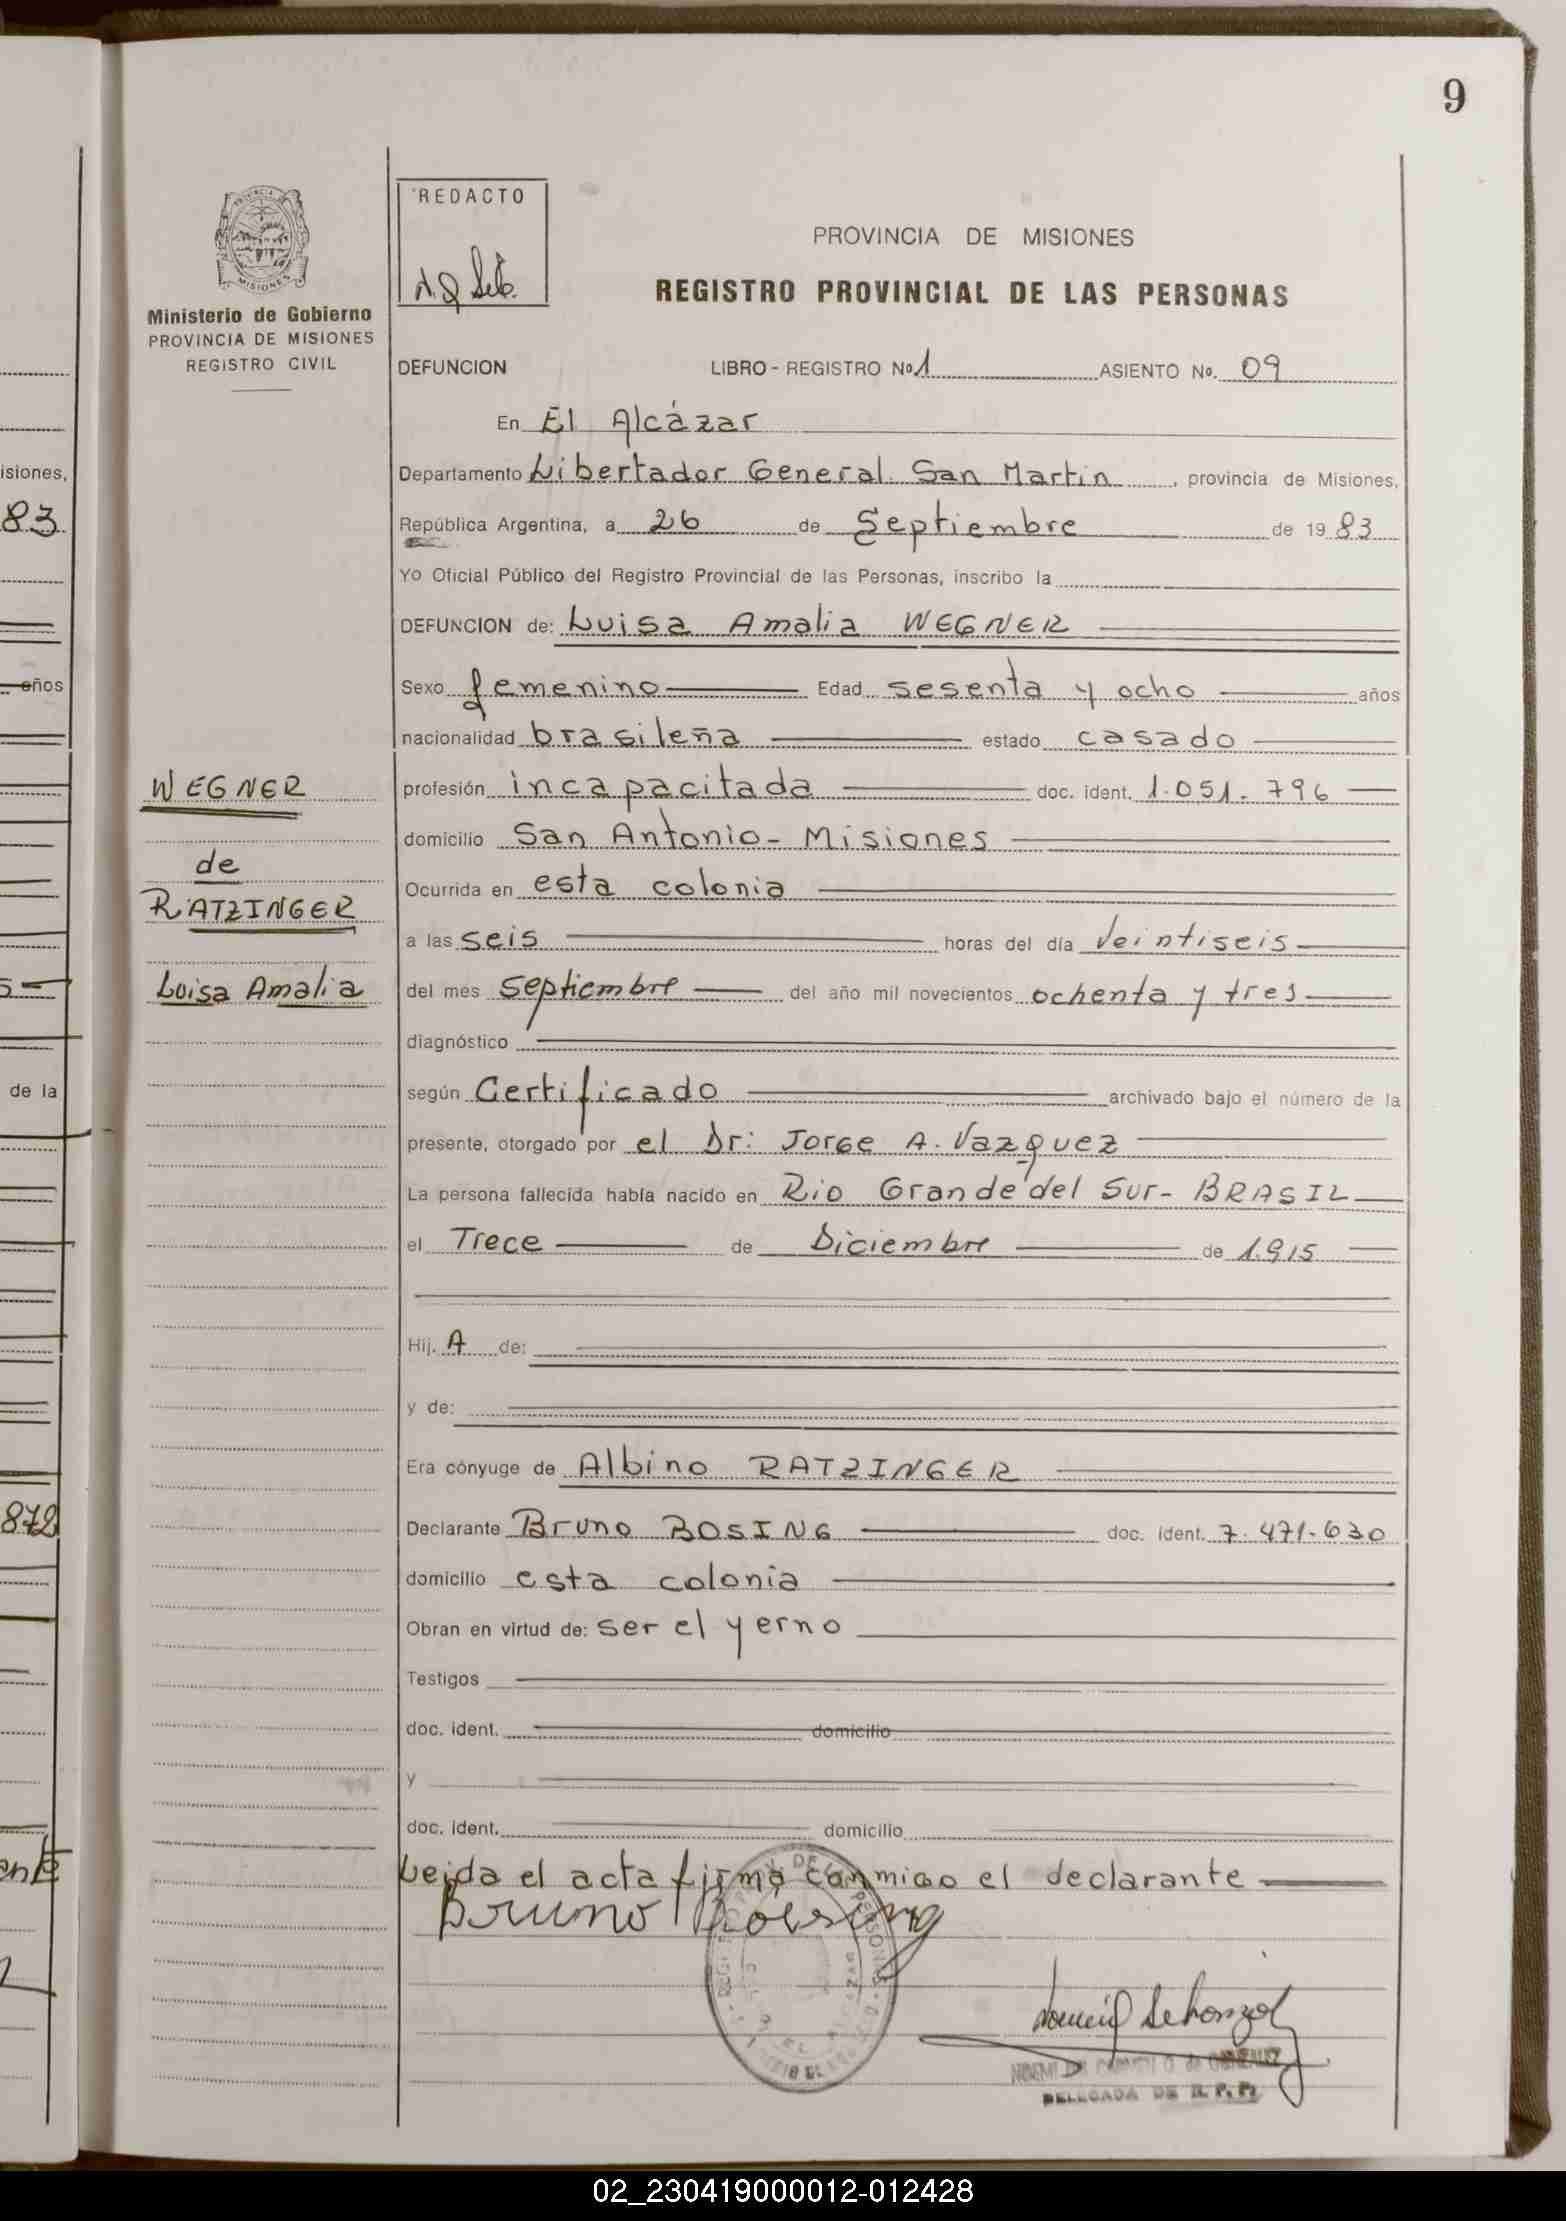 9
REDACTO
PROVINCIA DE MISIONES
REGISTRO PROVINCIAL DE LAS PERSONAS
MISIONES
Ministerio de Gobierno
PROVINCIA DE MISIONES
REGISTRO CIVIL
DEFUNCION LIBRO - REGISTRO No. 1 ASIENTO No. 09
En El Alcázar
Departamento Libertador General San Martin, provincia de Misiones,
República Argentina, a 26 de Septiembre de 1983
Yo Oficial Público del Registro Provincial de las Personas, inscribo la
DEFUNCION de: Luisa Amalia WEGNER
Sexo femenino Edad sesenta y ocho años
nacionalidad brasileña estado casado
profesión incapacitada doc. ident. 1.051.796
domicilio San Antonio - Misiones
Ocurrida en esta colonia
a las seis horas del día Veintiseis
del mes septiembre del año mil novecientos ochenta y tres
diagnóstico
según Certificado archivado bajo el número de la
presente, otorgado por el Dr: Jorge A. Vazquez
La persona fallecida había nacido en Rio Grande del Sur - BRASIL
el Trece de Diciembre de 1.915
Hij. A de:
y de:
Era cónyuge de Albino RATZINGER
Declarante Bruno BOSING doc. ident. 7.471.630
domicilio esta colonia
Obran en virtud de: ser el yerno
Testigos
doc. ident. domicilio
y
doc. ident. domicilio
Leida el acta firma conmigo el declarante
Bruno
DELEGADA DE R. P. P.
WEGNER
de
RATZINGER
Luisa Amalia
isiones,
83
años
de la
872
02_230419000012-012428